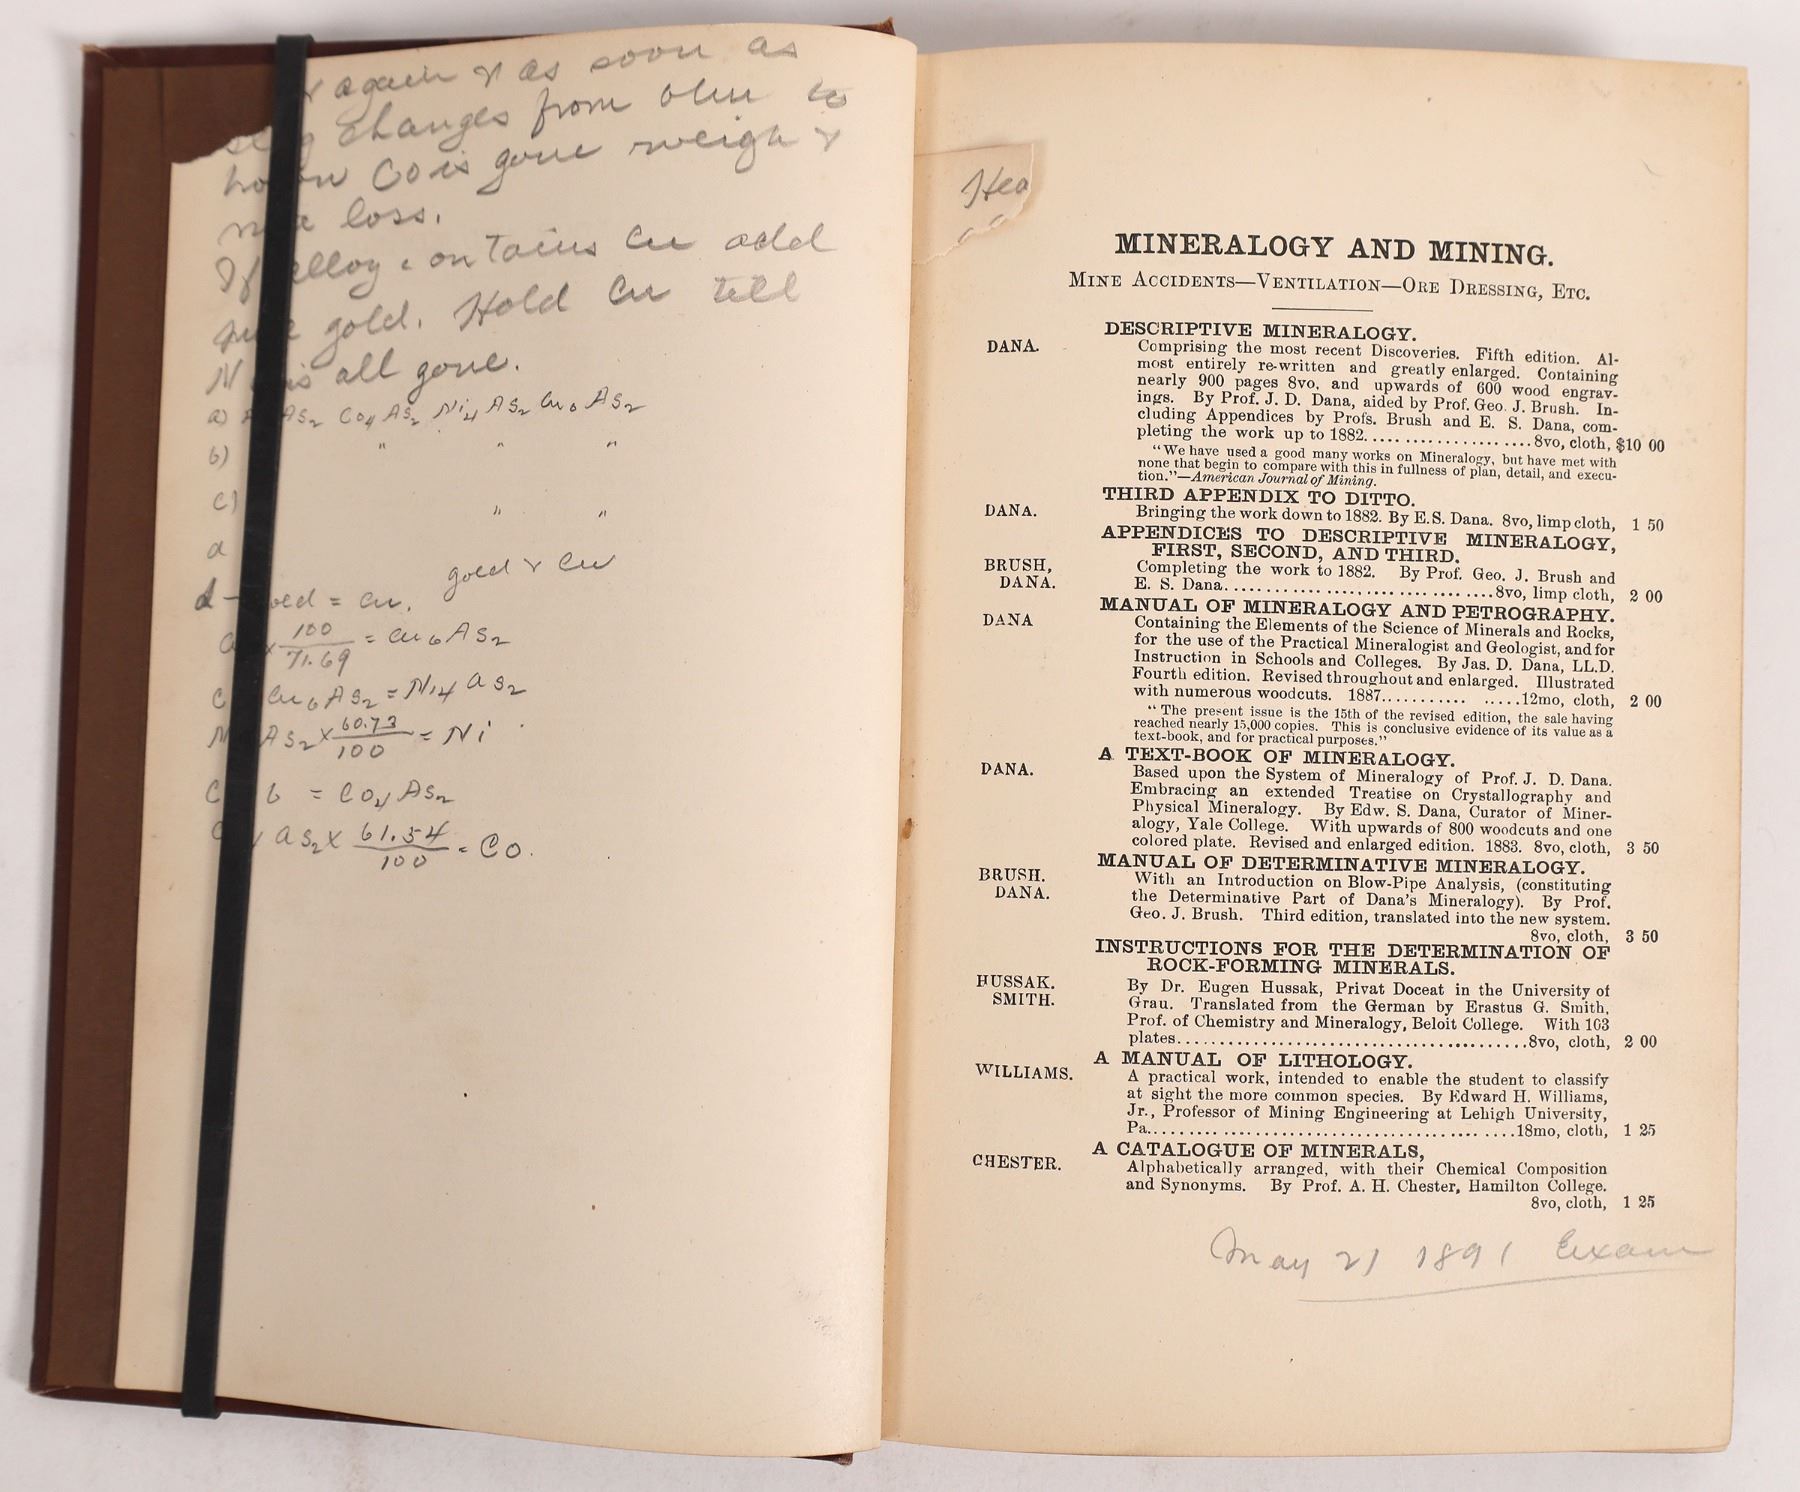 again & as soon as
changes from blue to
Co is gone weigh &
loss.
If alloy contains Cu add
gold. Hold Cu till
is all gone.
a) As2 Co4 As2 Ni4 As2 Cu6 As2
b) " " "
c) " "
d
gold & Cu
d - gold = Cu.
x 100/71.69 = Cu6As2
c Cu6As2 = Ni4As2
As2 x 60.73/100 = Ni
c b = Co4As2
As2 x 61.54/100 = Co.
Hea
MINERALOGY AND MINING.
MINE ACCIDENTS—VENTILATION—ORE DRESSING, ETC.
DESCRIPTIVE MINERALOGY.
DANA. Comprising the most recent Discoveries. Fifth edition. Al-
most entirely re-written and greatly enlarged. Containing
nearly 900 pages 8vo, and upwards of 600 wood engrav-
ings. By Prof. J. D. Dana, aided by Prof. Geo. J. Brush. In-
cluding Appendices by Profs. Brush and E. S. Dana, com-
pleting the work up to 1882..................8vo, cloth, $10 00
"We have used a good many works on Mineralogy, but have met with
none that begin to compare with this in fullness of plan, detail, and execu-
tion."—American Journal of Mining.
THIRD APPENDIX TO DITTO.
DANA. Bringing the work down to 1882. By E. S. Dana. 8vo, limp cloth, 1 50
APPENDICES TO DESCRIPTIVE MINERALOGY,
FIRST, SECOND, AND THIRD.
BRUSH, Completing the work to 1882. By Prof. Geo. J. Brush and
DANA. E. S. Dana..............................8vo, limp cloth, 2 00
MANUAL OF MINERALOGY AND PETROGRAPHY.
DANA Containing the Elements of the Science of Minerals and Rocks,
for the use of the Practical Mineralogist and Geologist, and for
Instruction in Schools and Colleges. By Jas. D. Dana, LL.D.
Fourth edition. Revised throughout and enlarged. Illustrated
with numerous woodcuts. 1887................12mo, cloth, 2 00
"The present issue is the 15th of the revised edition, the sale having
reached nearly 15,000 copies. This is conclusive evidence of its value as a
text-book, and for practical purposes."
A TEXT-BOOK OF MINERALOGY.
DANA. Based upon the System of Mineralogy of Prof. J. D. Dana.
Embracing an extended Treatise on Crystallography and
Physical Mineralogy. By Edw. S. Dana, Curator of Miner-
alogy, Yale College. With upwards of 800 woodcuts and one
colored plate. Revised and enlarged edition. 1883. 8vo, cloth, 3 50
MANUAL OF DETERMINATIVE MINERALOGY.
BRUSH. With an Introduction on Blow-Pipe Analysis, (constituting
DANA. the Determinative Part of Dana's Mineralogy). By Prof.
Geo. J. Brush. Third edition, translated into the new system.
8vo, cloth, 3 50
INSTRUCTIONS FOR THE DETERMINATION OF
ROCK-FORMING MINERALS.
HUSSAK. By Dr. Eugen Hussak, Privat Doceat in the University of
SMITH. Grau. Translated from the German by Erastus G. Smith,
Prof. of Chemistry and Mineralogy, Beloit College. With 103
plates........................................8vo, cloth, 2 00
A MANUAL OF LITHOLOGY.
WILLIAMS. A practical work, intended to enable the student to classify
at sight the more common species. By Edward H. Williams,
Jr., Professor of Mining Engineering at Lehigh University,
Pa..........................................18mo, cloth, 1 25
A CATALOGUE OF MINERALS,
CHESTER. Alphabetically arranged, with their Chemical Composition
and Synonyms. By Prof. A. H. Chester, Hamilton College.
8vo, cloth, 1 25
May 21 1891 Exam